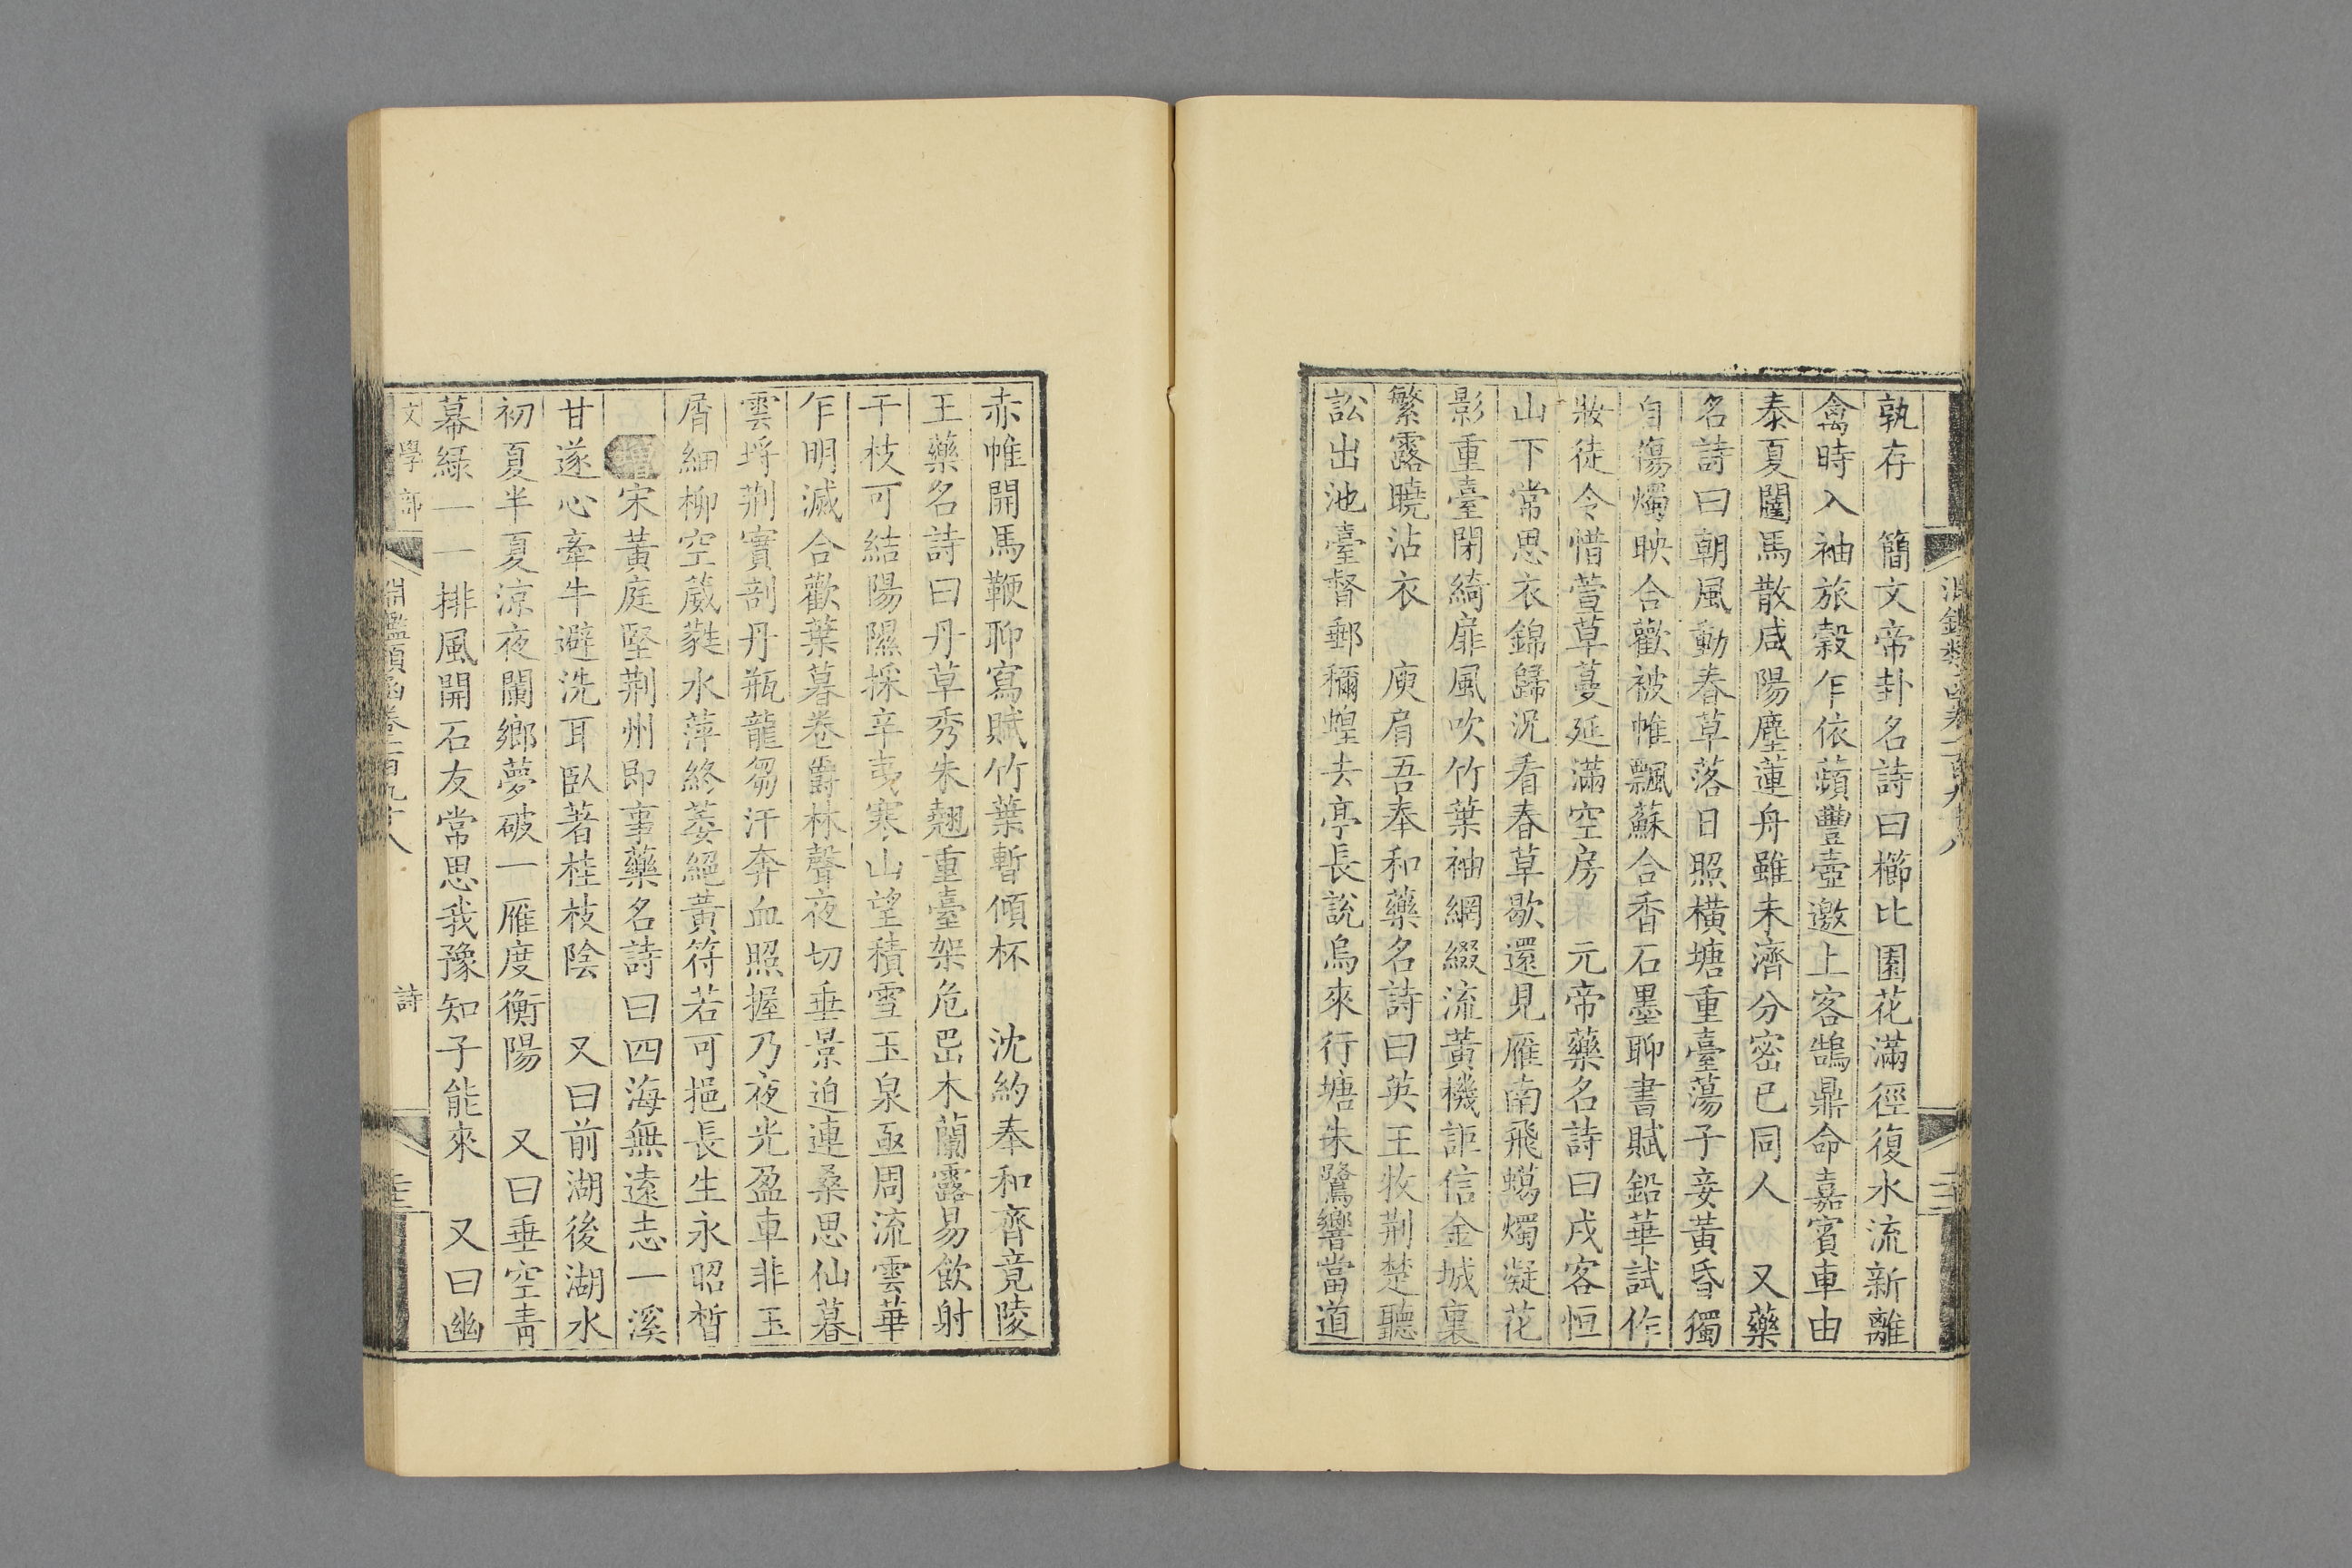 孰存　簡文帝卦名詩曰櫛比園花滿徑復水流新離
禽時入袖旅穀乍依蘋豐壺邀上客鵠鼎命嘉賓車由
泰夏闥馬散咸陽塵蓮舟雖未濟分密已同人　又藥
名詩曰朝風動春草落日照橫塘重臺蕩子妾黃昏獨
自傷燭映合歡被帷飄蘇合香石墨聊書賦鉛華試作
妝徒令惜萱草蔓延滿空房　元帝藥名詩曰戍客恒
山下常思衣錦歸況看春草歇還見雁南飛蝎燭凝花
影重臺閉綺扉風吹竹葉袖網綴流黃機詎信金城裏
繁露曉沾衣　庾肩吾奉和藥名詩曰英王牧荆楚聽
訟出池臺督郵稱蝗去亭長說烏來行塘朱鷺響當道
赤帷開馬鞭聊寫賦竹葉暫傾杯　沈約奉和齊竟陵
王藥名詩曰丹草秀朱翹重臺架危岊木蘭露易飲射
干枝可結陽隰採辛夷寒山望積雪玉泉亟周流雲華
乍明滅合歡葉暮卷爵林聲夜切垂景迫連桑思仙慕
雲埒荆實剖丹瓶龍芻汗奔血照握乃夜光盈車非玉
屑細柳空葳蕤水萍終萎絕黃符若可挹長生永昭晳
增宋黃庭堅荆州即事藥名詩曰四海無遠志一溪
甘遂心牽牛避洗耳臥著桂枝陰　又曰前湖後湖水
初夏半夏涼夜闌鄉夢破一雁度衡陽　又曰垂空青
幕綠一一排風開石友常思我豫知子能來　又曰幽
文學部　淵鑑類函卷一百九十八　詩